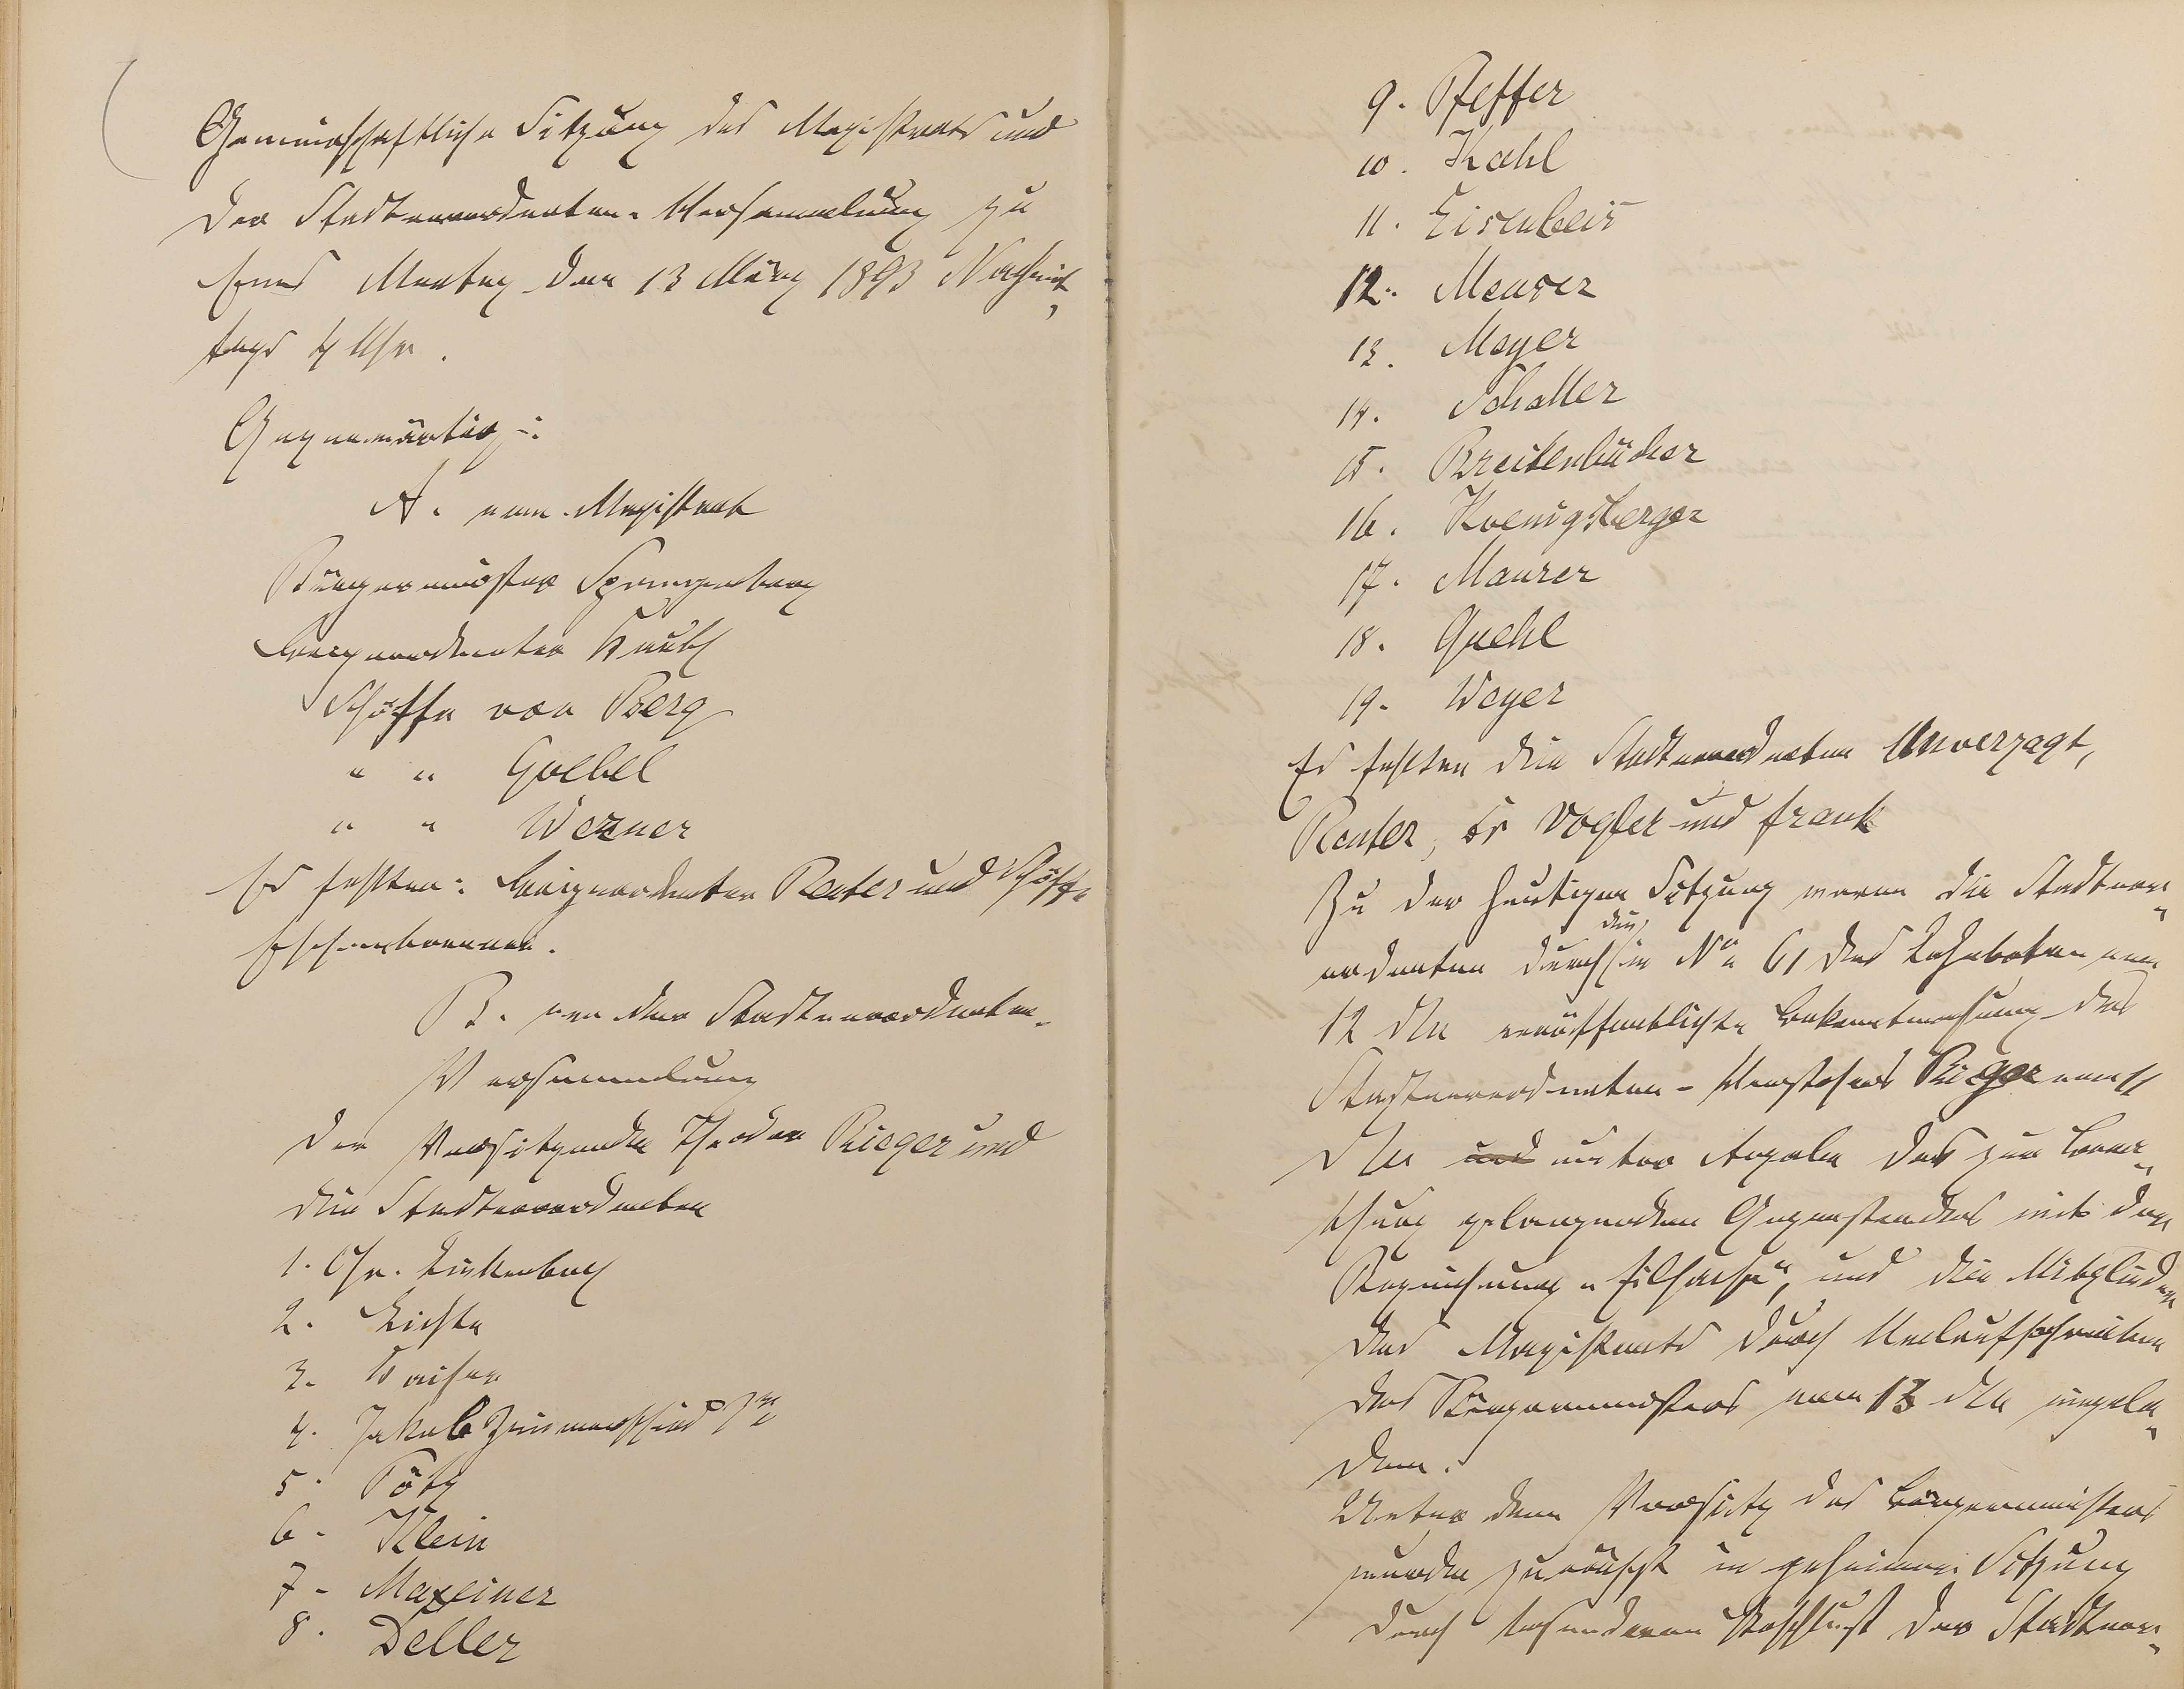 Gemeinschaftliche Sitzung des Magistrats und
der Stadtverordneten-Versammlung zu
Ems Montag den 13 März 1893 Nachmit„
tags 4 Uhr.
Gegenwärtig:
A. vom Magistrat
Bürgermeister Spangenberg
Beigeordneter Knuth
Schöffe von Berg
" " Goebel
" " Werner
Es fehlten: Beigeordneter Reuter und Schöffe
Eschenbrenner.
B. von der Stadtverordneten-
Versammlung
Der Vorsitzende Theodor Rieger und
die Stadtverordneten
1. Chr. Linkenbach
2. Liesche
3. Kaiser
4. Jakob Zimmerschied
5. Pötz
6. Klein
7. Maxeiner
8. Deller
9. Pfeffer
10. Kahl
11. Eisenbeis
12. Meuser
13. Meyer
14. Schaller
15. Breitenbücher
16. Koenigsberger
17. Maurer
18. Quehl
19. Weyer
Es fehlten die Stadtverordneten Unverzagt,
Reuter, Dr Vogler und Frank
Zu der heutigen Sitzung waren die Stadtver„
ordneten durch die in No 61 des Lahnboten vom
12 d M veröffentlichte Bekanntmachung des
Stadtverordneten-Vorstehers Rieger vom 11
d M und unter Angabe des zur Bera„
thung gelangenden Gegenstandes mit der
Bezeichnung „Eilsache“, und die Mitglieder
des Magistrats durch Umlaufschreiben
des Bürgermeisters vom 13 d M eingela„
den.
Unter dem Vorsitz des Bürgermeisters
wurde zunächst in geheimer Sitzung
durch besonderen Beschluß der Stadtver„